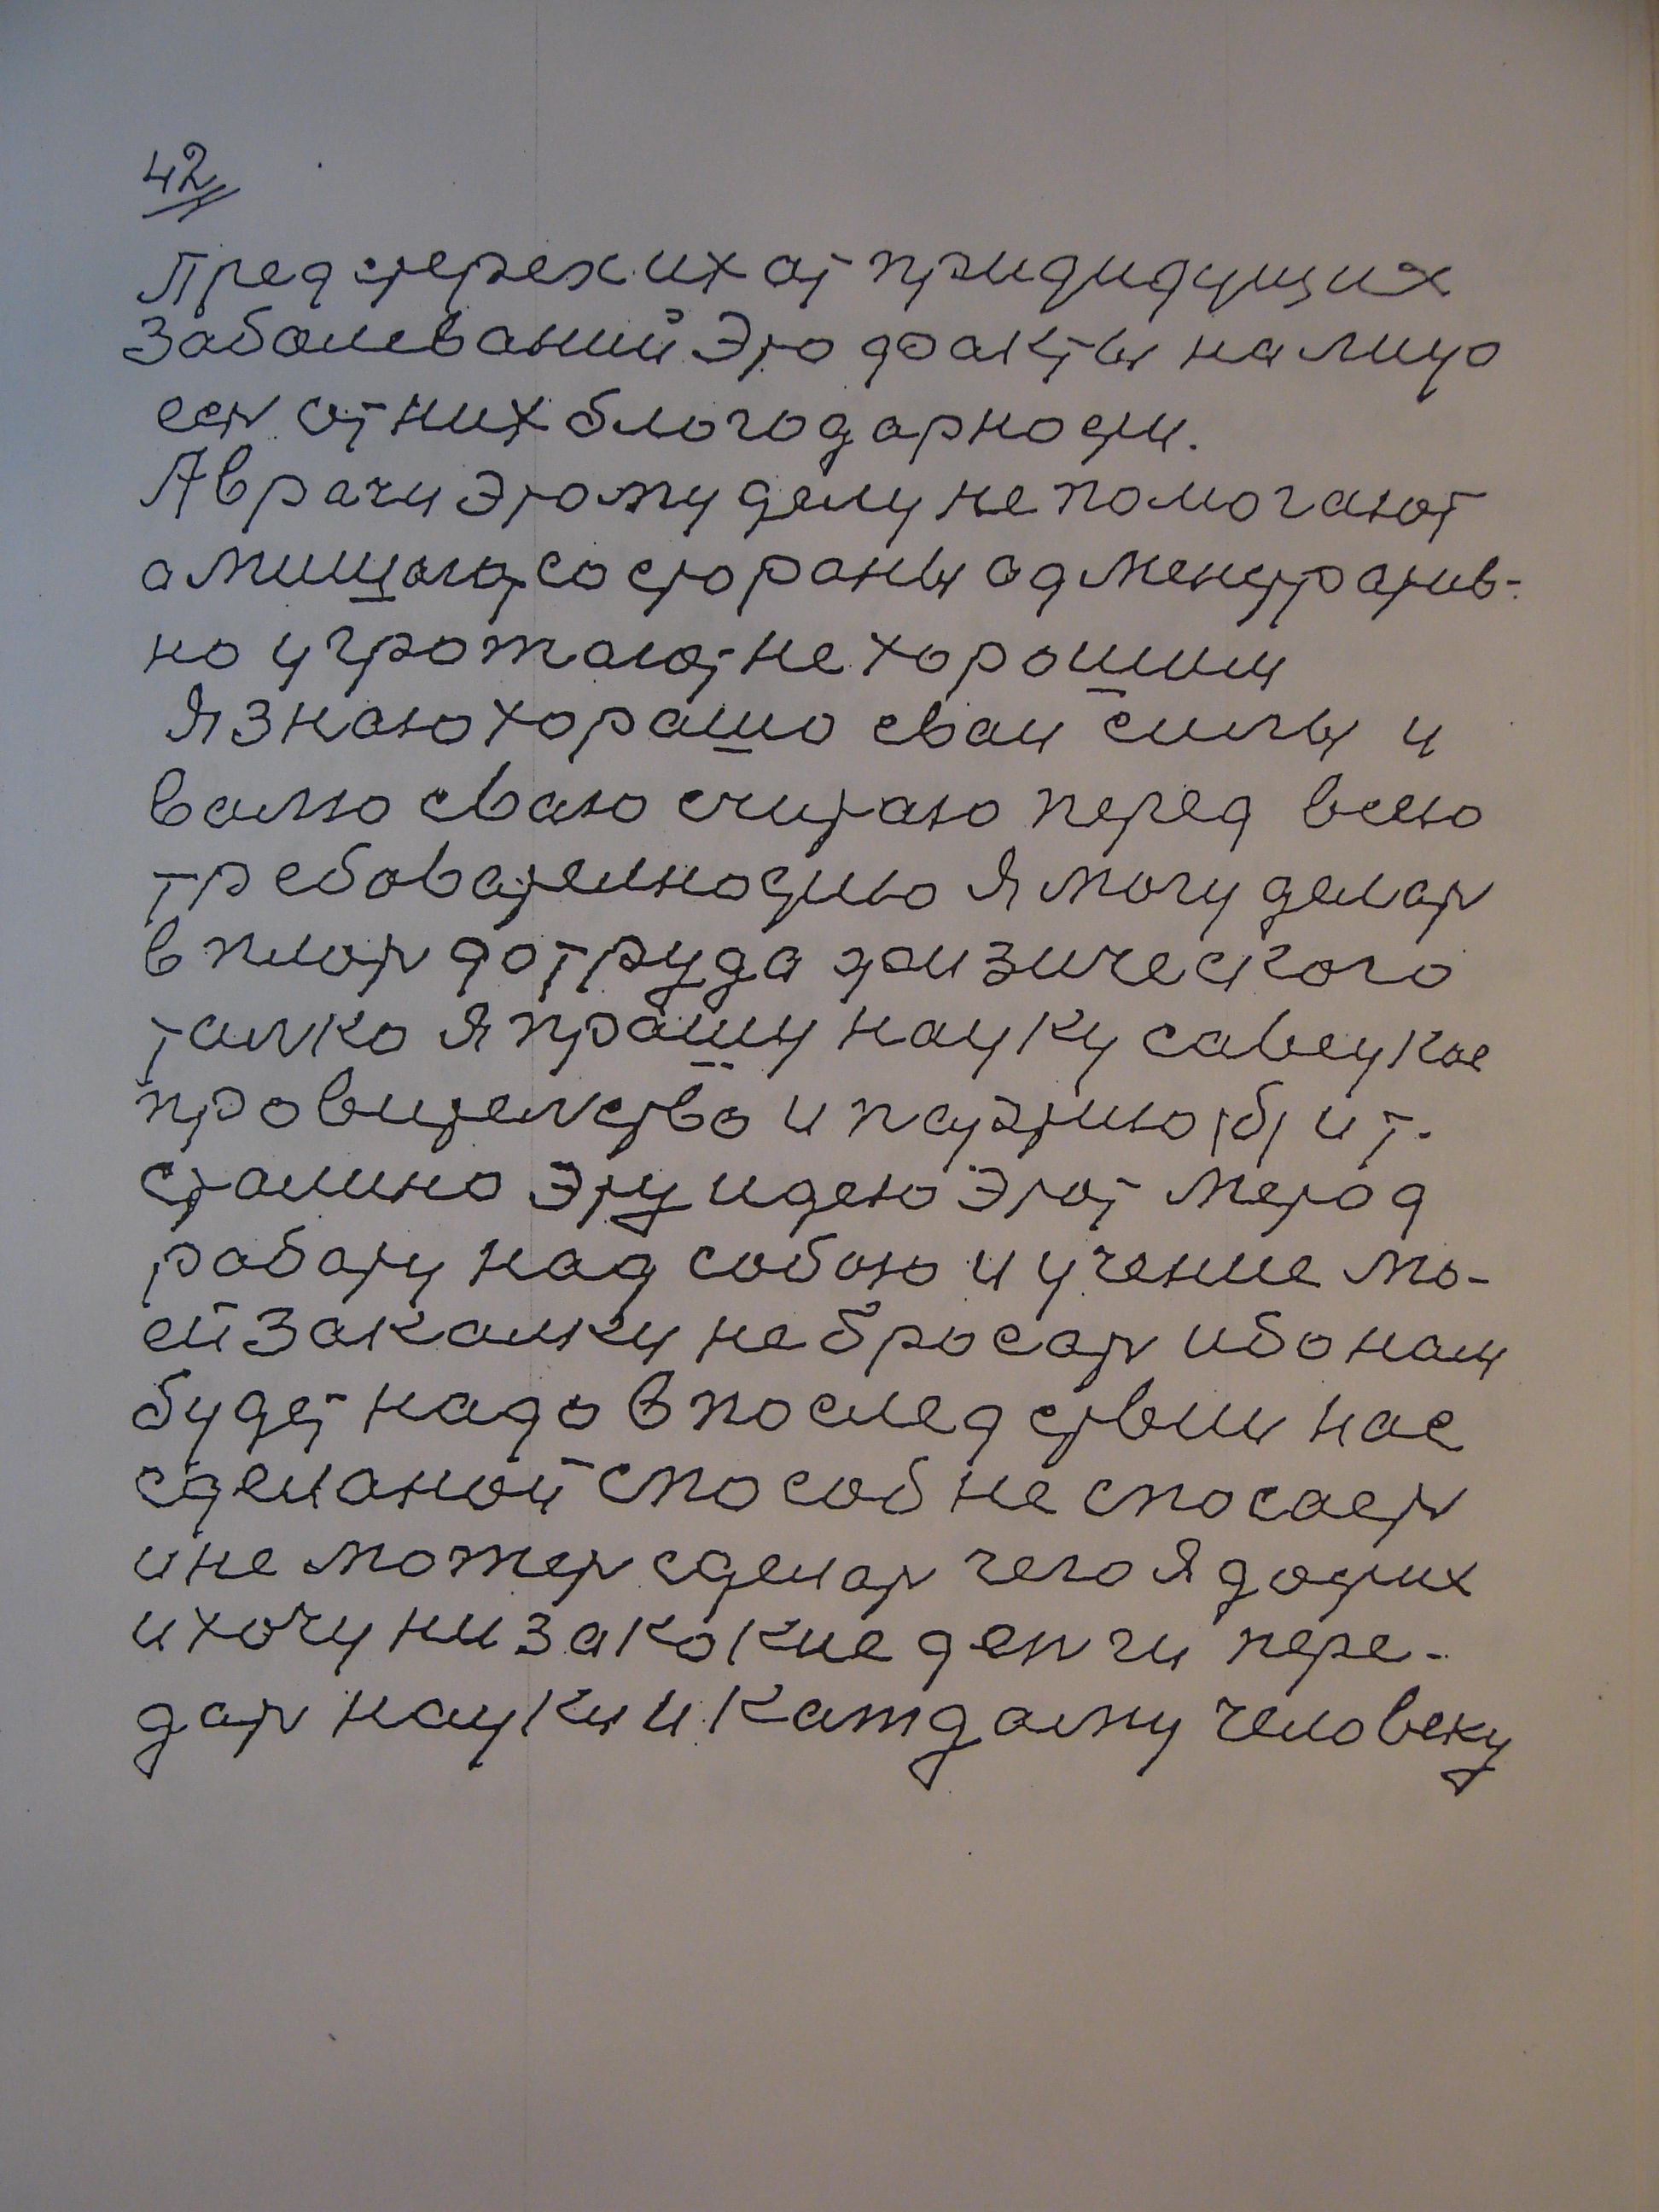 42
Предстерех их от придидущих
заболеваний Это факты на лицо
есть от них блогодарности.
А врачи этому делу не помогают
а мишают со стораны адменистратив-
но угрожают не хорошим
Я знаю хорашо сваи силы и
валю сваю считаю перед всею
требователностию Я могу делать
вплоть до труда физического
толко я прашу науку савецкое
провителство и партию /б/ и т.
сталина эту идею Этот метод
работу над собою и учение мо-
ей закалки не бросать ибо нам
будет надо впоследствии нас
сделаной способ не спосаеть
и неможеть сделать чего я достих
и хочу ни за кокие денги пере-
дать науки и каждаму человеку